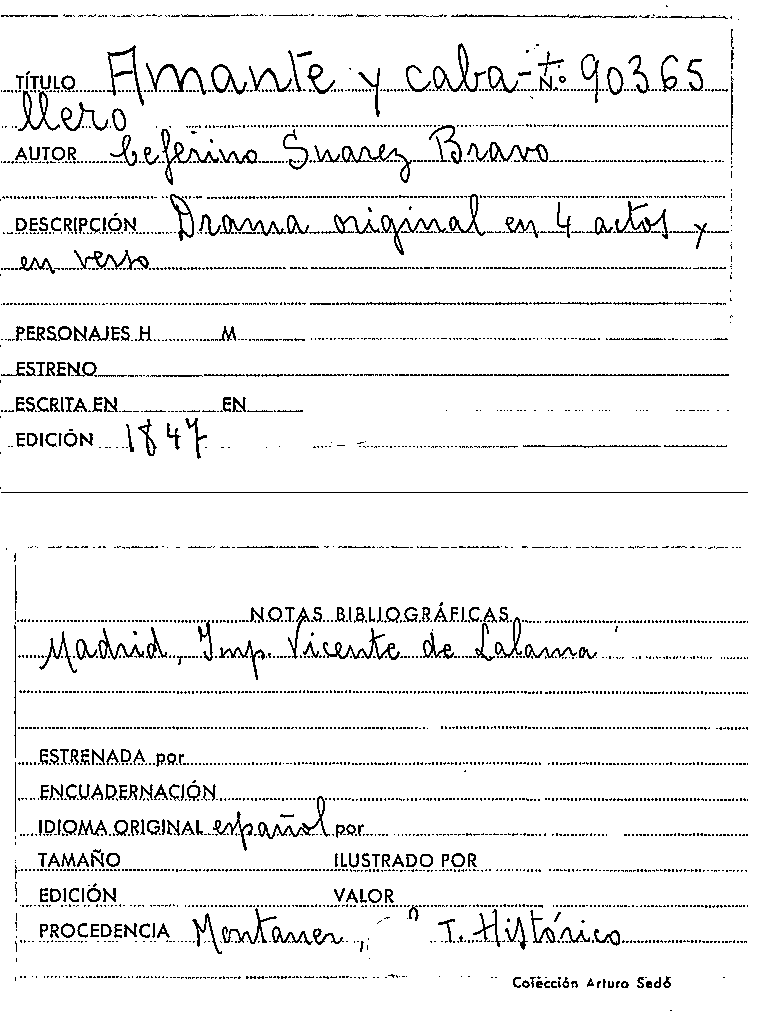 TÍTULO Amante y caba- N.º 90365
llero
AUTOR Ceferino Suarez Bravo
DESCRIPCIÓN Drama original en 4 actos y
en verso
PERSONAJES H M
ESTRENO
ESCRITA EN EN
EDICIÓN 1847
NOTAS BIBLIOGRÁFICAS
Madrid, Imp. Vicente de Lalama
ESTRENADA por
ENCUADERNACIÓN
IDIOMA ORIGINAL español por
TAMAÑO ILUSTRADO POR
EDICIÓN VALOR
PROCEDENCIA Montaner, T. Histórico
Colección Arturo Sedó